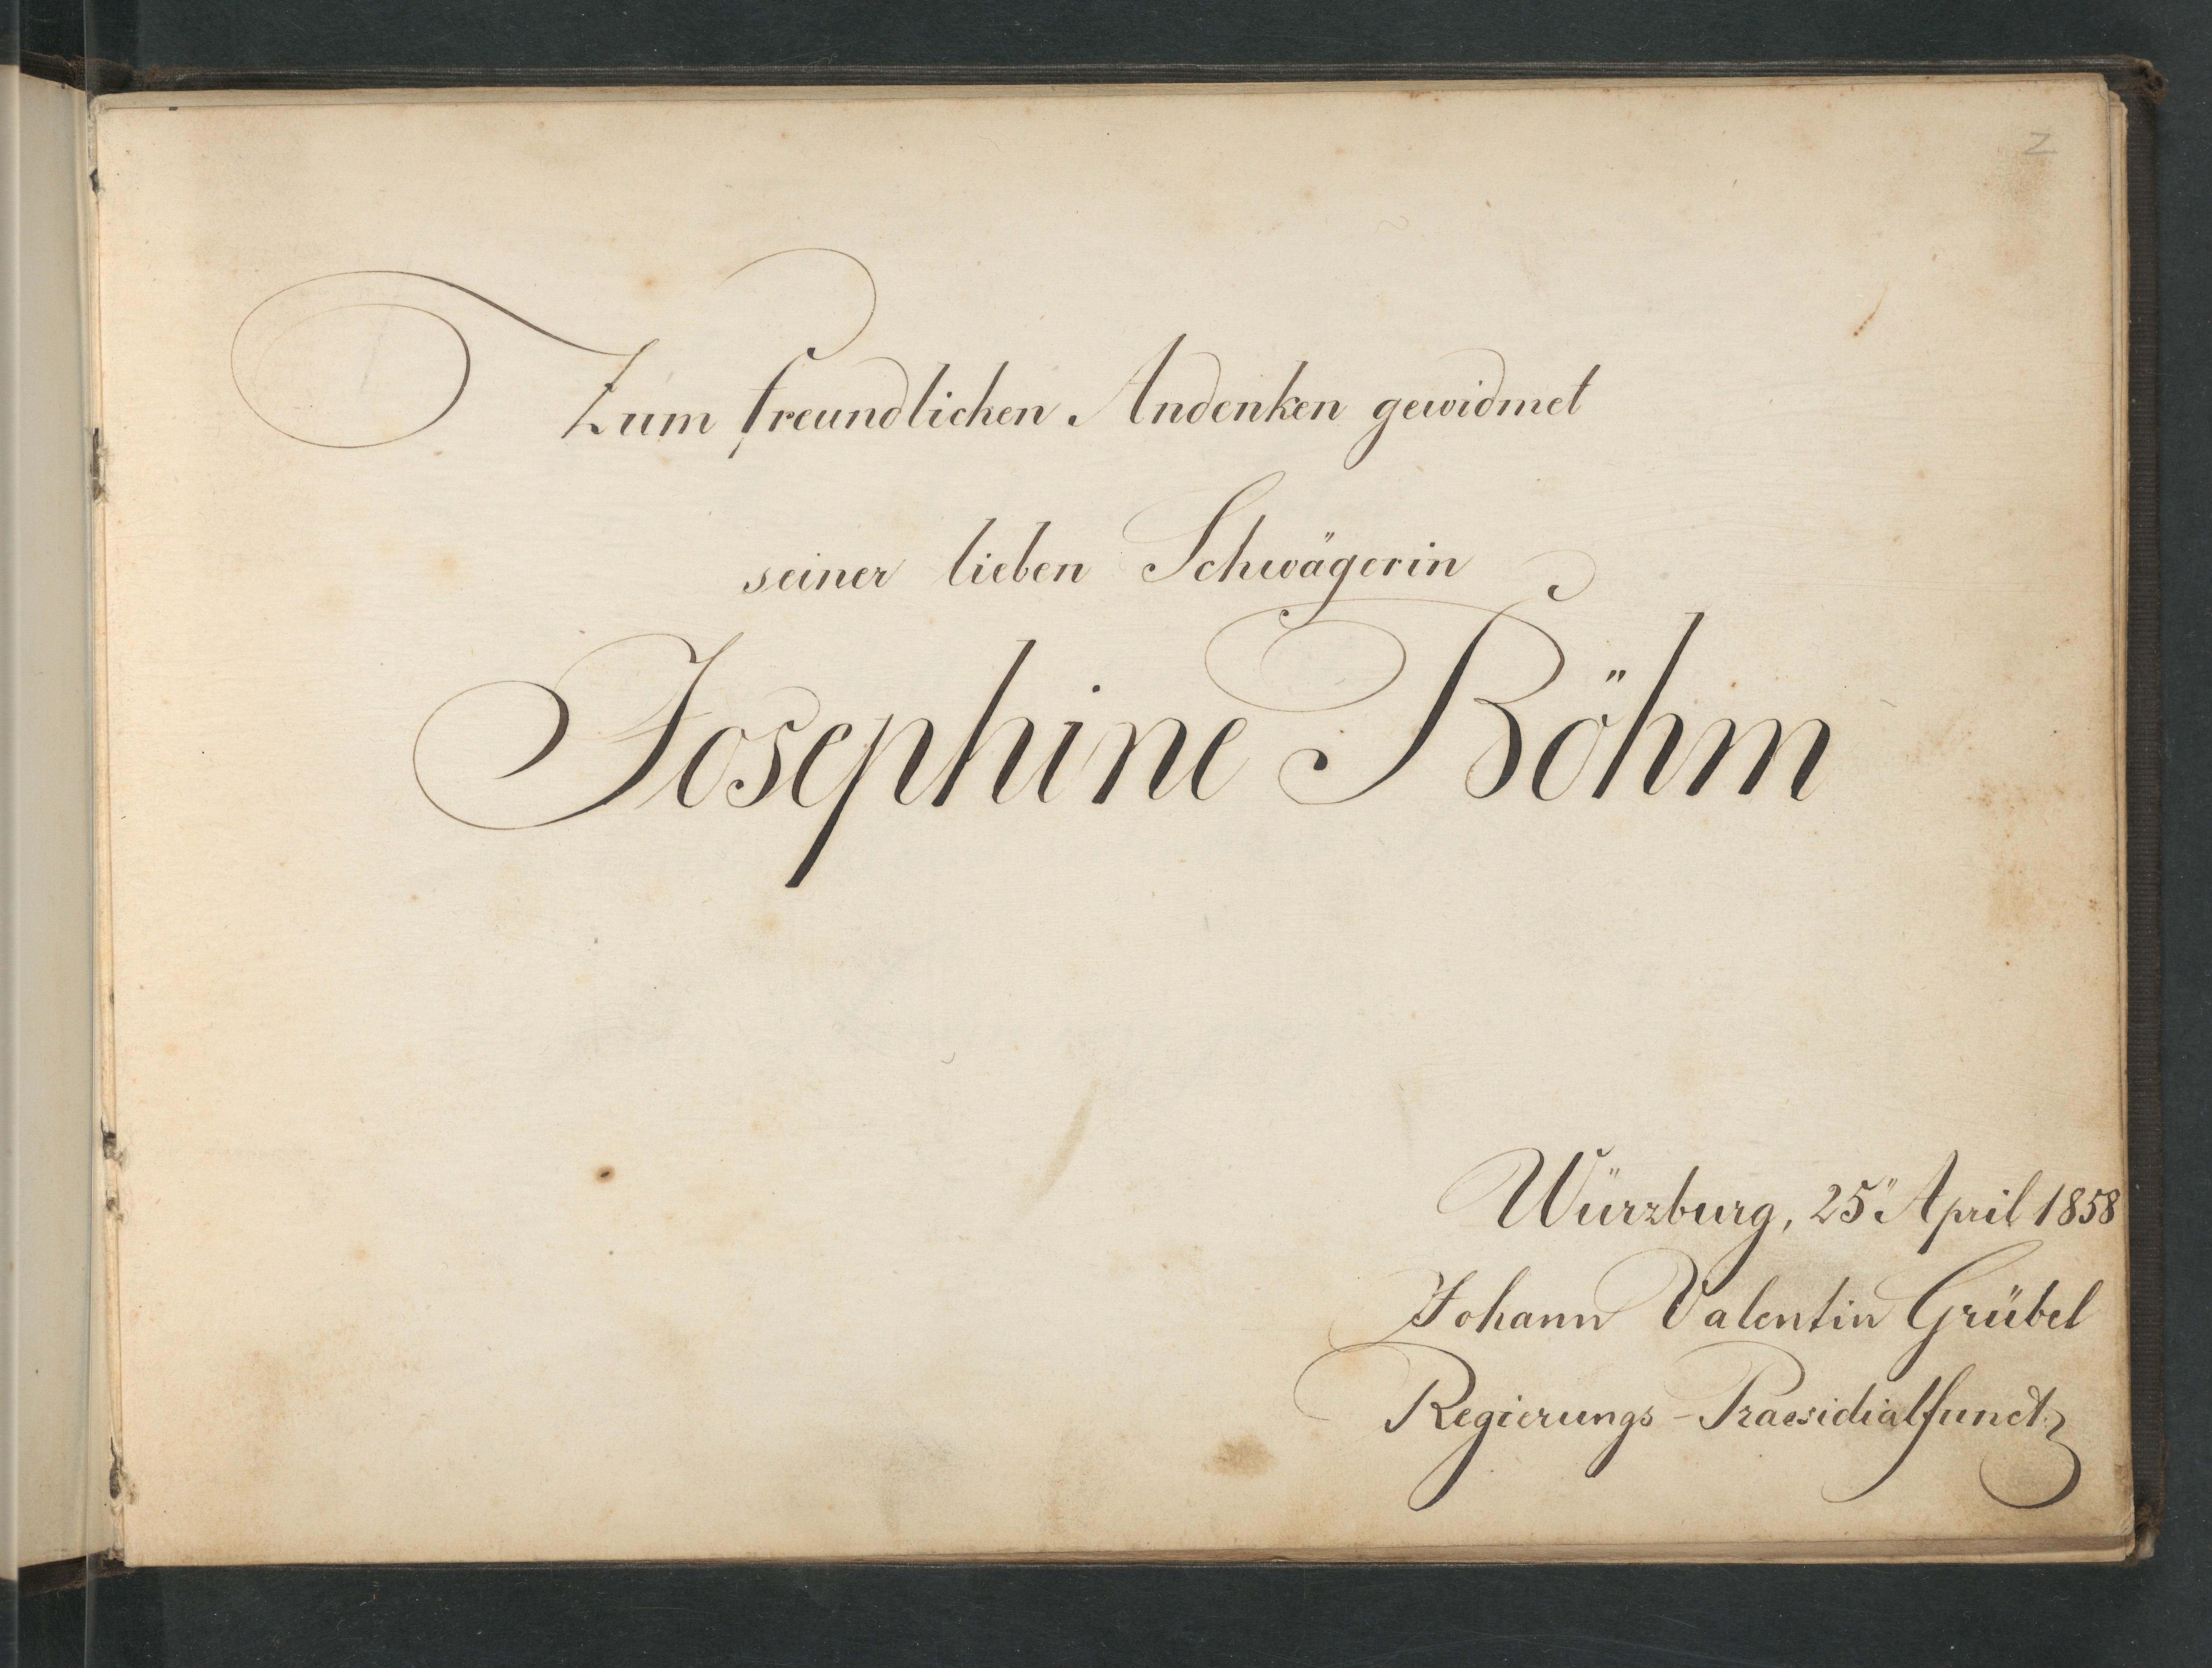 2
Zum freundlichen Andenken gewidmet
seiner lieben Schwägerin
Josephine Böhm
Würzburg, 25" April 1858
Johann Valentin Grübel
Regierungs-Praesidialfunct.